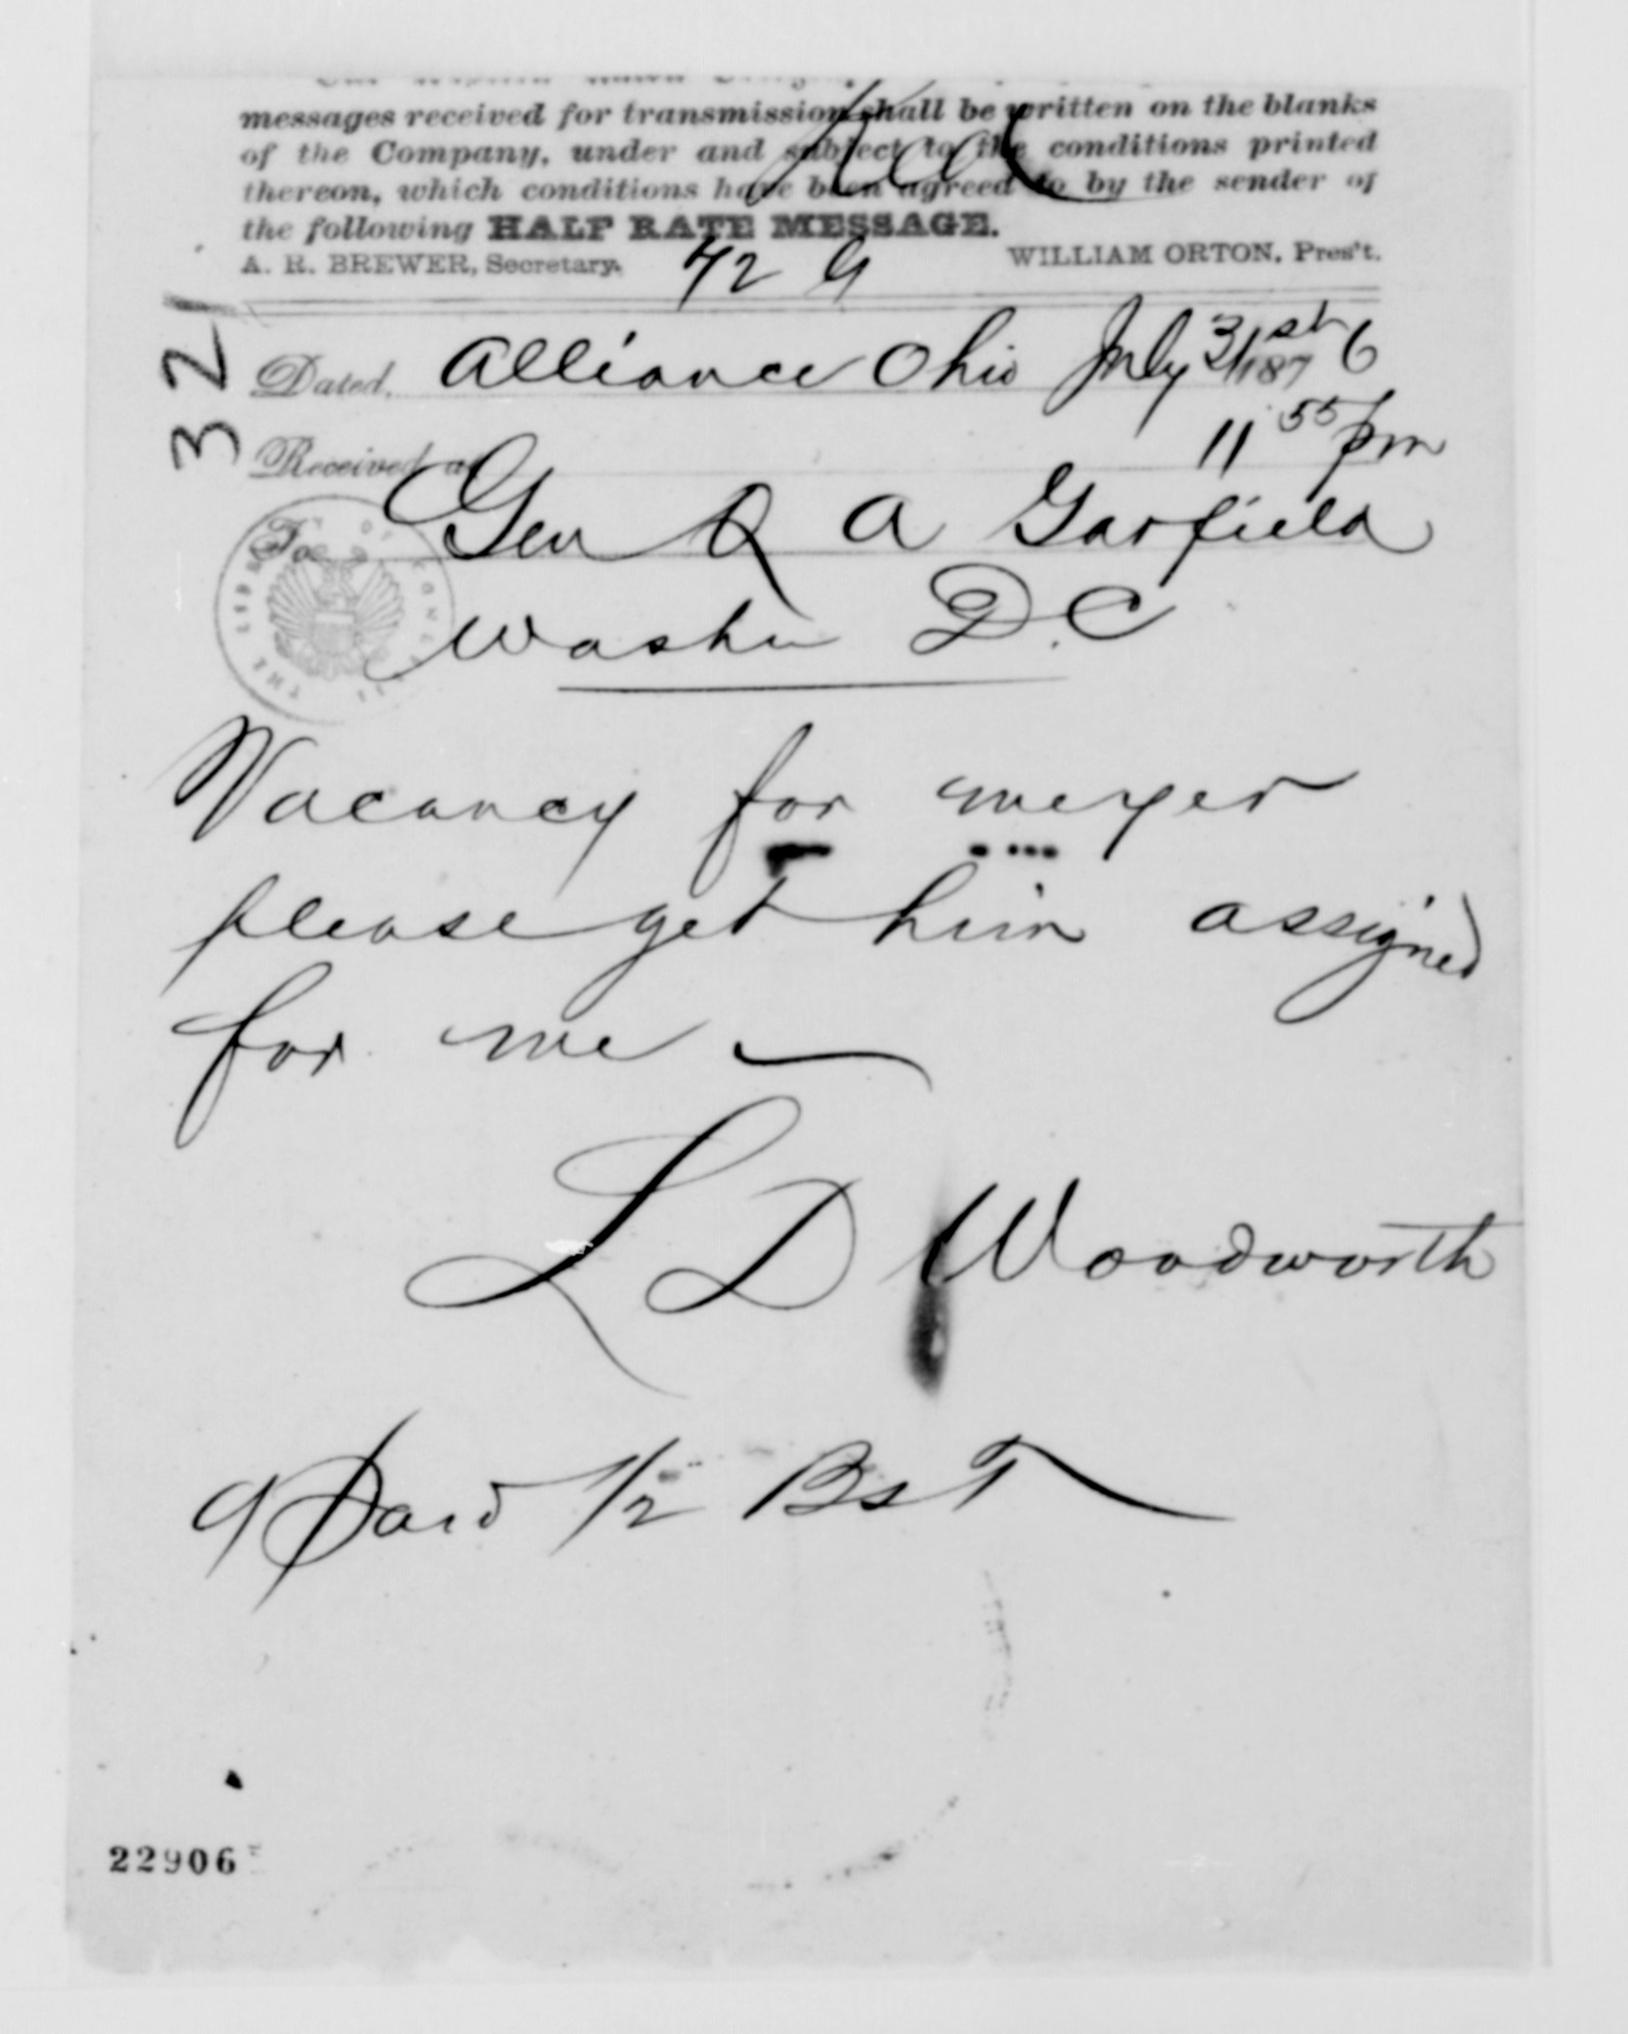 messages received for transmission shall be written on the blanks
of the Company, under and subject to the conditions printed
thereon, which conditions have been agreed to by the sender of
the following HALF RATE MESSAGE.
A. R. BREWER, Secretary. WILLIAM ORTON, Pres't.
72 G
321
Dated, Alliance Ohio July 31st 1876
Received at 11 55 pm
To Gen A Garfield
Washn D.C
Vacancy for meyer
please get him assigned
for me —
L D Woodworth
9 Paid 1/2
22906